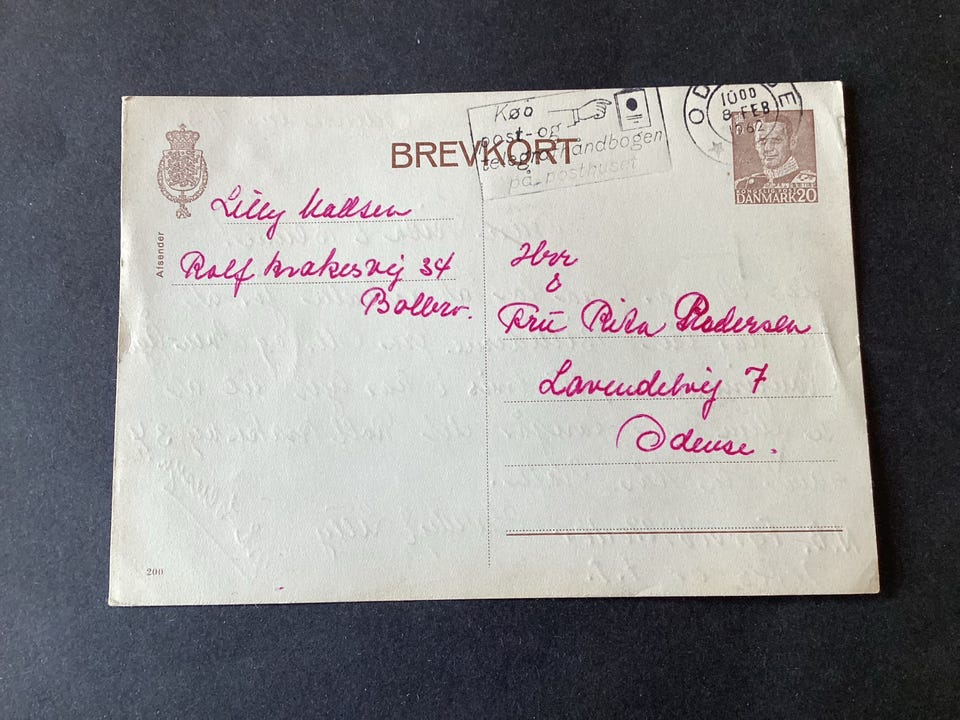 Køb
post- og
telegrafhåndbogen
på posthuset
ODENSE
1000
8 FEB
1962
BREVKORT
DANMARK 20
Afsender
Lilly Madsen
Rolf Krakesvej 34
Bolbro.
Herr
&
Fru Rita Pedersen
Lavendelvej 7
Odense.
200